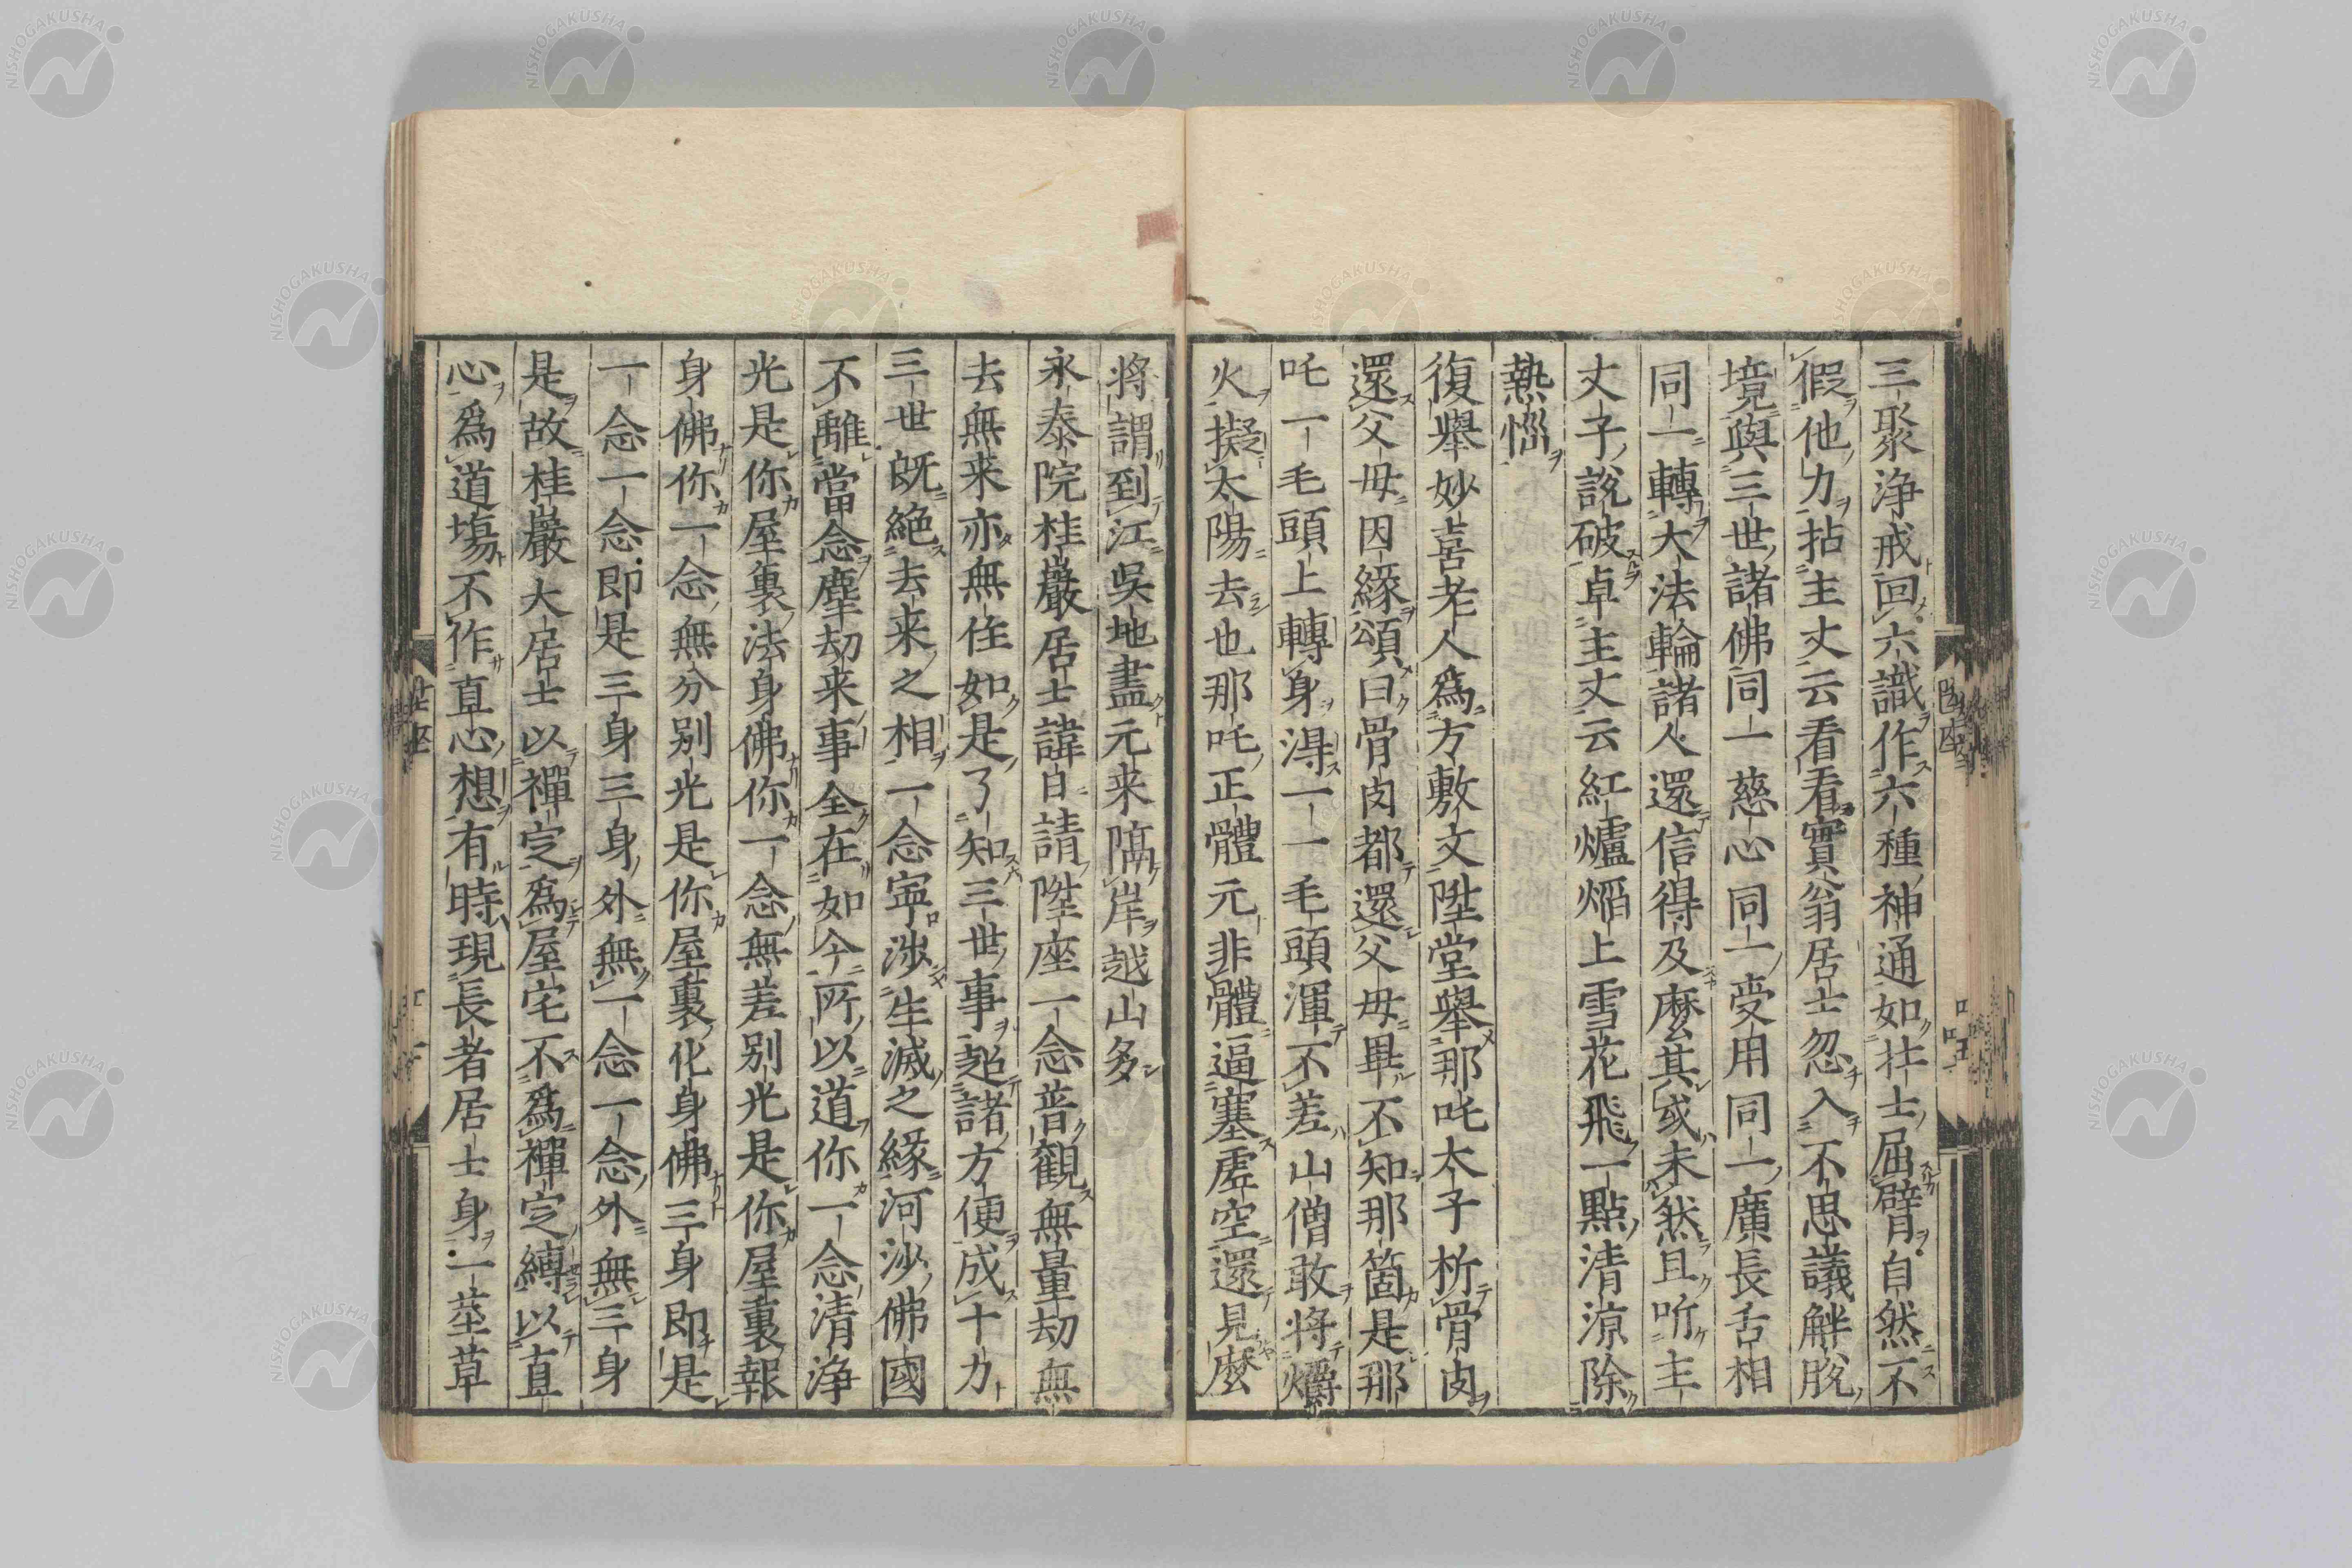 三聚浄戒回六識作六種神通如壮士屈臂自然不
假他力拈主丈云看看實翁居士忽入不思議解脱
境與三世諸佛同一慈心同一受用同一廣長舌相
同一轉大法輪諸人還信得及麼其或未然且听主
丈子説破卓主丈云紅爐熖上雪花飛一點清涼除
熱惱
復舉妙喜老人爲方敷文陞堂舉那吒太子析骨肉
還父母因緣頌曰骨肉都還父母畢不知那箇是那
吒一毛頭上轉身淂一一毛頭渾不差山僧敢將爝
火擬太陽去也那吒正體元非體逼塞虚空還見麼
將謂到江吳地盡元来隔岸越山多
永泰院桂巖居士諱日請陞座一念普觀無量劫無
去無来亦無住如是了知三世事超諸方便成十力
三世既絶去来之相一念寧渉生滅之緣河沙佛國
不離當念塵劫来事全在如今所以道你一念清浄
光是你屋裏法身佛你一念無差别光是你屋裏報
身佛你一念無分别光是你屋裏化身佛三身即是
一念一念即是三身三身外無一念一念外無三身
是故桂巖大居士以禪定爲屋宅不爲禪定縛以直
心爲道塲不作直心想有時現長者居士身一莖草
NISHOGAKUSHA